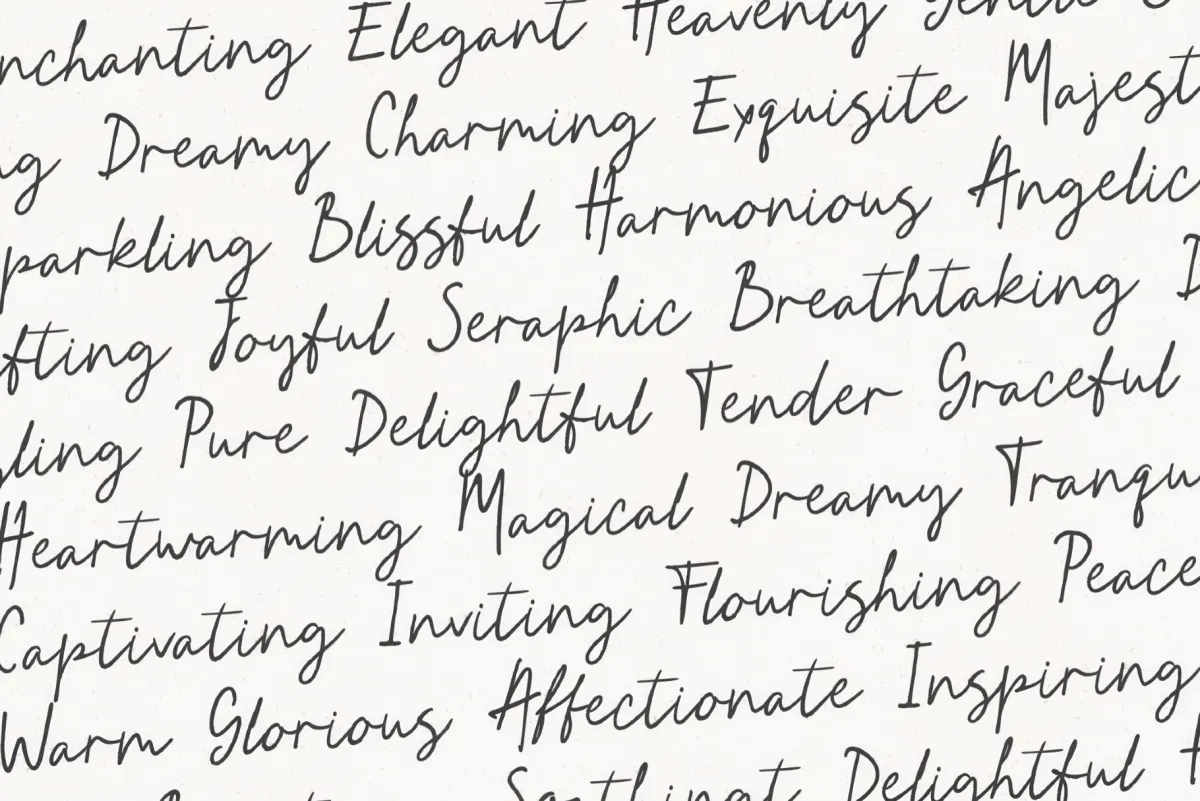 nchanting Elegant Heavenly Gentle
ng Dreamy Charming Exquisite Majest
parkling Blissful Harmonious Angelic
fting Joyful Seraphic Breathtaking
ling Pure Delightful Tender Graceful
Heartwarming Magical Dreamy Tranqu
Captivating Inviting Flourishing Peace
Warm Glorious Affectionate Inspiring
Delightful